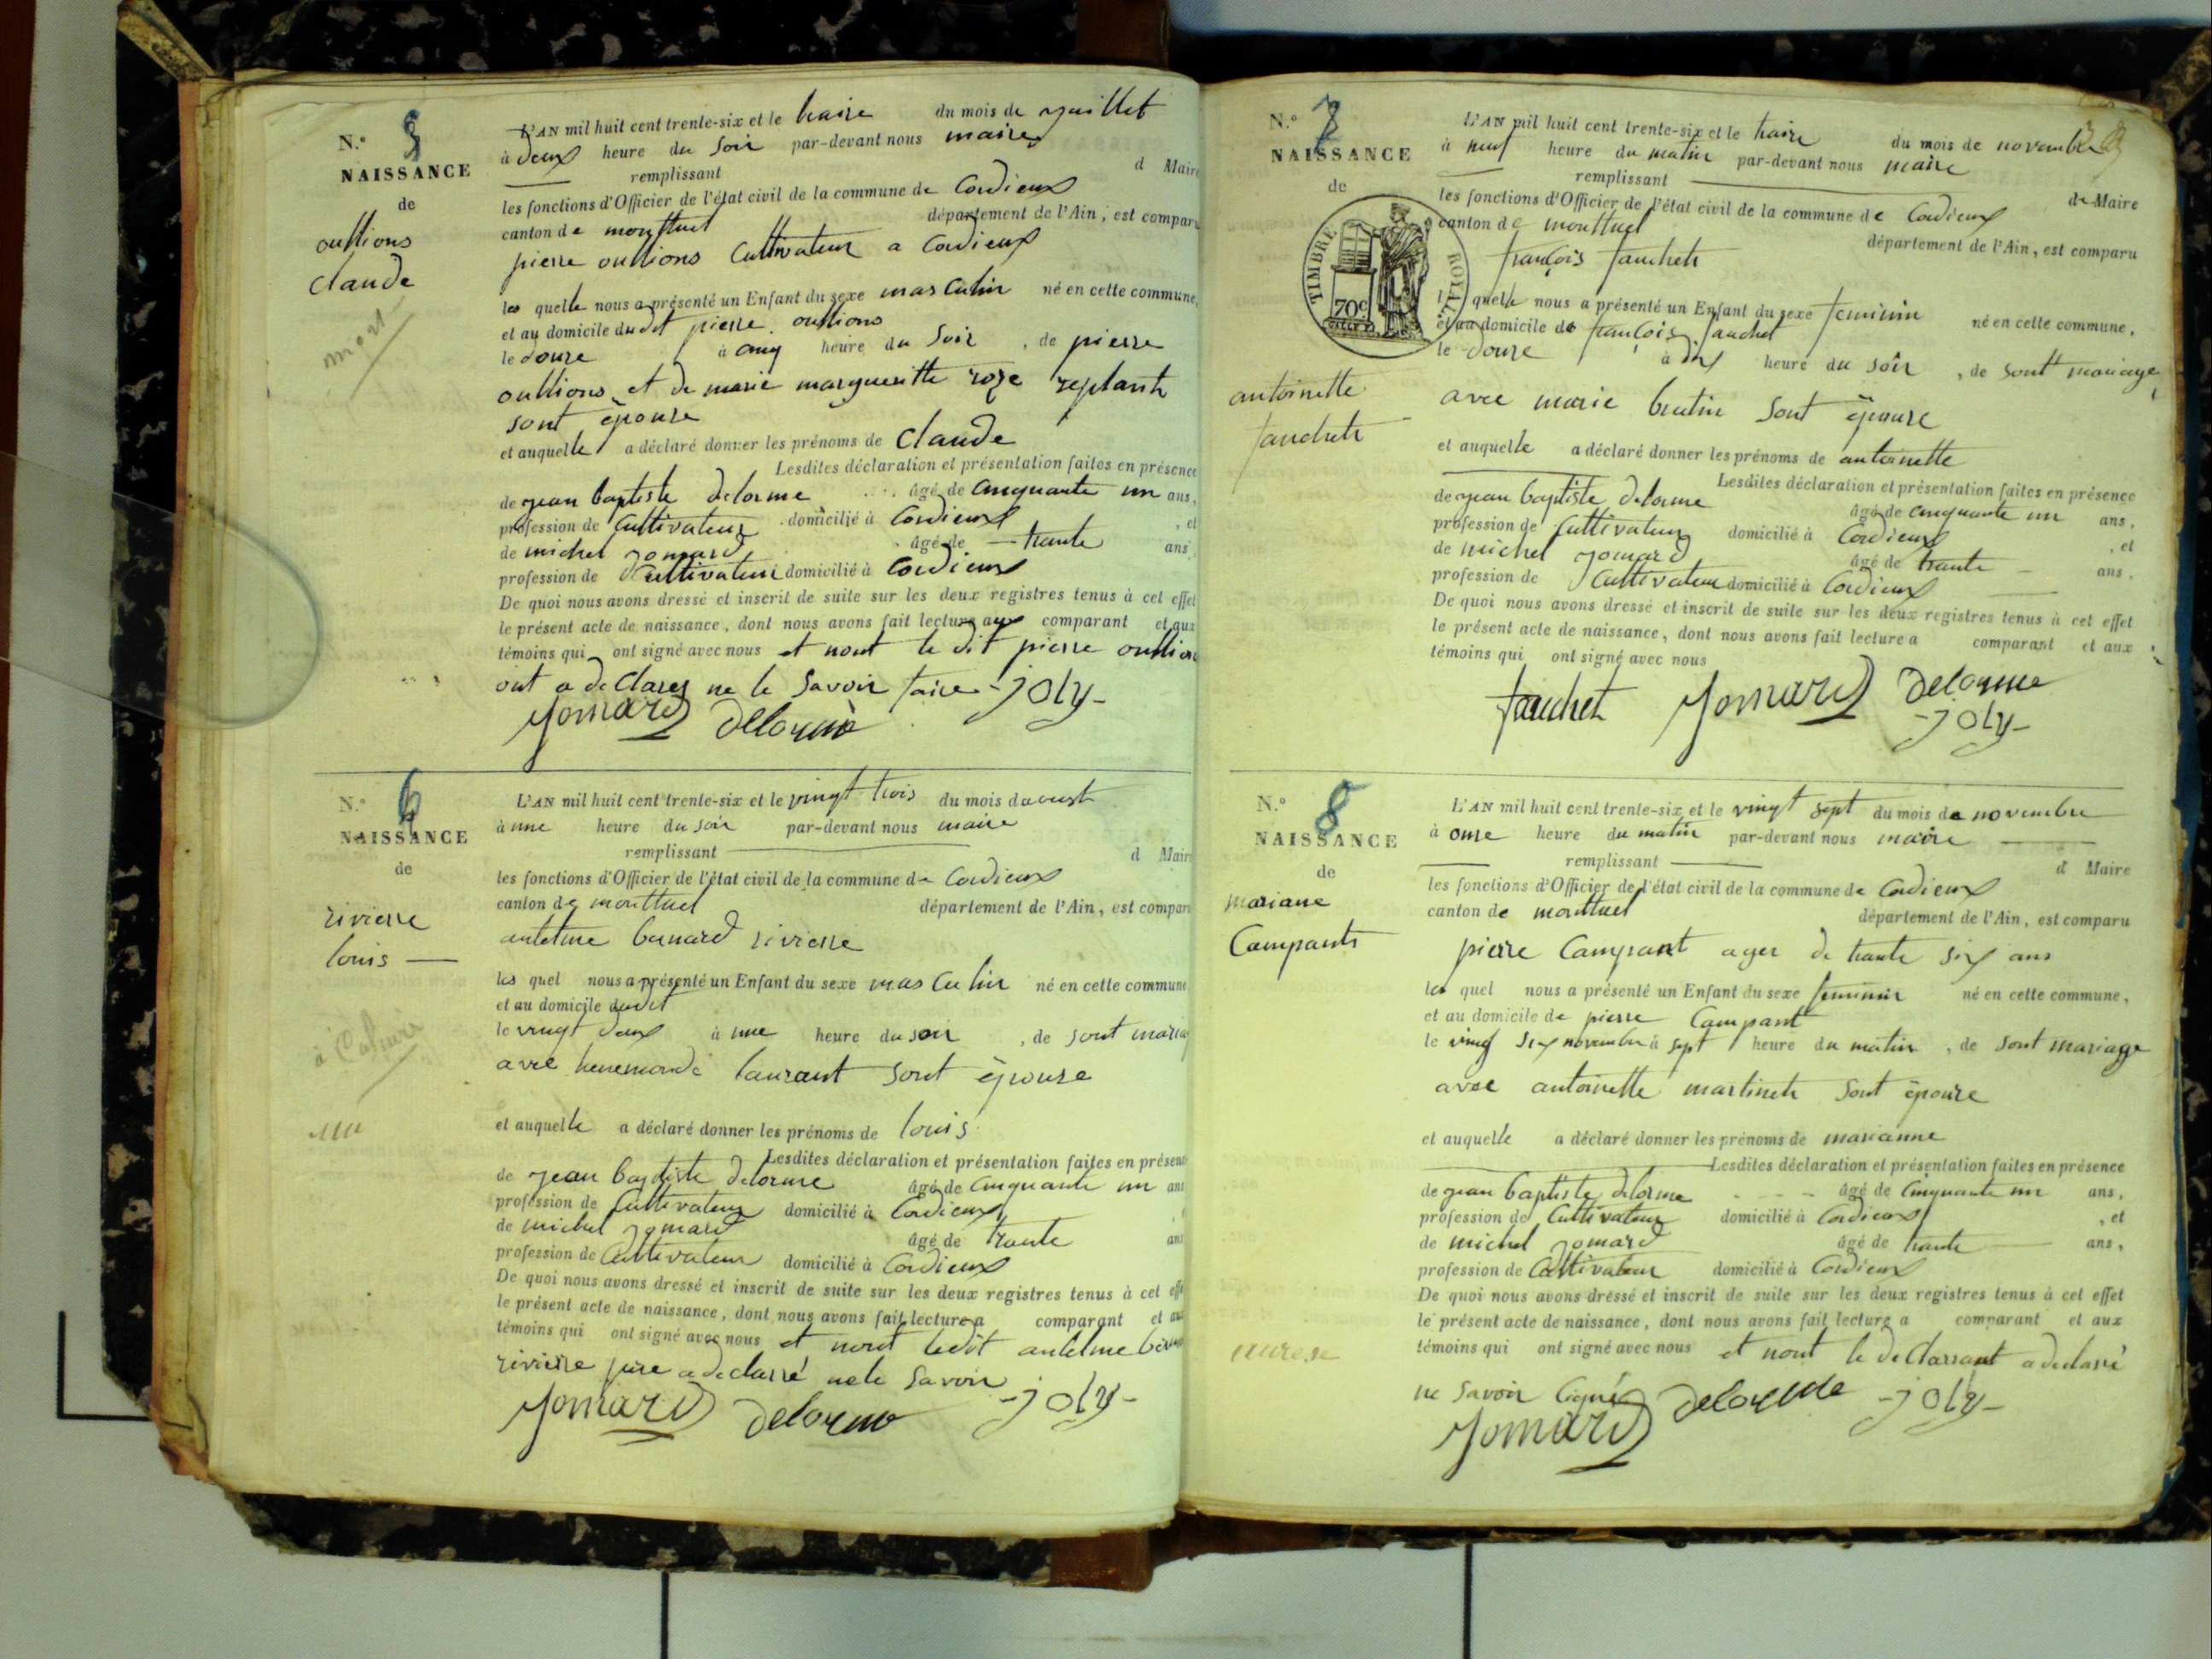 N.° 5
NAISSANCE
de
oullions
claude
mort
L'AN mil huit cent trente-six et le traise du mois de juillet
à deux heure du soir par-devant nous maire
remplissant d Maire
les fonctions d'Officier de l'état civil de la commune de Cordieux
canton de montluel département de l'Ain, est comparu
pierre oullions Cultivateur a Cordieux
les quelle nous a présenté un Enfant du sexe masculin né en cette commune,
et au domicile dudit pierre oullions
le douze à cinq heure du soir, de pierre
oullions et de marie margueritte roze replante
sont épouse
et auquelle a déclaré donner les prénoms de claude
Lesdites déclaration et présentation faites en présence
de jean baptiste delorme âgé de cinquante un ans,
profession de Cultivateur domicilié à Cordieux, et
de michel jomard âgé de trante ans,
profession de Cultivateur domicilié à Cordieux
De quoi nous avons dressé et inscrit de suite sur les deux registres tenus à cet effet
le présent acte de naissance, dont nous avons fait lecture aux comparant et aux
témoins qui ont signé avec nous et nont le dit pierre oullions
ont a declares ne le savoir faire -joly-
jomard delorme
N.° 6
NAISSANCE
de
rivierre
louis
L'AN mil huit cent trente-six et le vingt trois du mois daoust
à une heure du soir par-devant nous maire
remplissant d Maire
les fonctions d'Officier de l'état civil de la commune de Cordieux
canton de montluel département de l'Ain, est comparu
antelme bernard rivierre
les quel nous a présenté un Enfant du sexe masculin né en cette commune
et au domicile dudit
le vingt deux à une heure du soir, de sont maria
avec henemonde laurant sont épouse
et auquelle a déclaré donner les prénoms de louis
Lesdites déclaration et présentation faites en présen
de jean baptiste delorme âgé de cinquante un ans
profession de Cultivateur domicilié à Cordieux
de michel jomard âgé de trante ans
profession de Cultivateur domicilié à Cordieux
De quoi nous avons dressé et inscrit de suite sur les deux registres tenus à cet effe
le présent acte de naissance, dont nous avons fait lecture a comparant et au
témoins qui ont signé avec nous et nont ledit antelme
rivierre pere a declarré ne le savoir
jomard delorme -joly-
N.° 7
NAISSANCE
de
TIMBRE ROYAL
70c
antoinette
fauchets
L'AN mil huit cent trente-six et le traire du mois de novembre
à neuf heure du matin par-devant nous maire
remplissant de Maire
les fonctions d'Officier de l'état civil de la commune de Cordieux
canton de montluel département de l'Ain, est comparu
françois fauchets
l quelle nous a présenté un Enfant du sexe feminin né en cette commune,
et au domicile de françois fauchet
le douze à dix heure du soir, de sont mariage
avec marie brutin sont épouse
et auquelle a déclaré donner les prénoms de antoinette
Lesdites déclaration et présentation faites en présence
de jean baptiste delorme âgé de cinquante un ans,
profession de Cultivateur domicilié à Cordieux, et
de michel jomard âgé de trante ans,
profession de Cultivateur domicilié à Cordieux
De quoi nous avons dressé et inscrit de suite sur les deux registres tenus à cet effet
le présent acte de naissance, dont nous avons fait lecture a comparant et aux
témoins qui ont signé avec nous
fauchet jomard delorme
-joly-
N.° 8
NAISSANCE
de
mariane
Campants
L'AN mil huit cent trente-six et le vingt sept du mois de novembre
à onse heure du matin par-devant nous maire
remplissant d Maire
les fonctions d'Officier de l'état civil de la commune de Cordieux
canton de montluel département de l'Ain, est comparu
pierre Campant ager de trante six ans
les quel nous a présenté un Enfant du sexe feminin né en cette commune,
et au domicile de pierre Campant
le vingt six novembre à sept heure du matin, de sont mariage
avec antoinette martinets sont épouse
et auquelle a déclaré donner les prénoms de marianne
Lesdites déclaration et présentation faites en présence
de jean baptiste delorme âgé de cinquante un ans,
profession de Cultivateur domicilié à Cordieux, et
de michel jomard âgé de trante ans,
profession de Cultivateur domicilié à Cordieux
De quoi nous avons dressé et inscrit de suite sur les deux registres tenus à cet effet
le présent acte de naissance, dont nous avons fait lecture a comparant et aux
témoins qui ont signé avec nous et nont le declarrant a declaré
ne savoir signé delorme -joly-
jomard